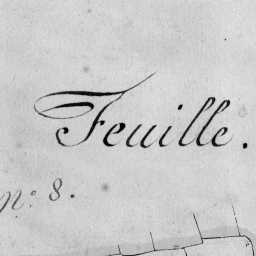 Feuille.
n: 8.